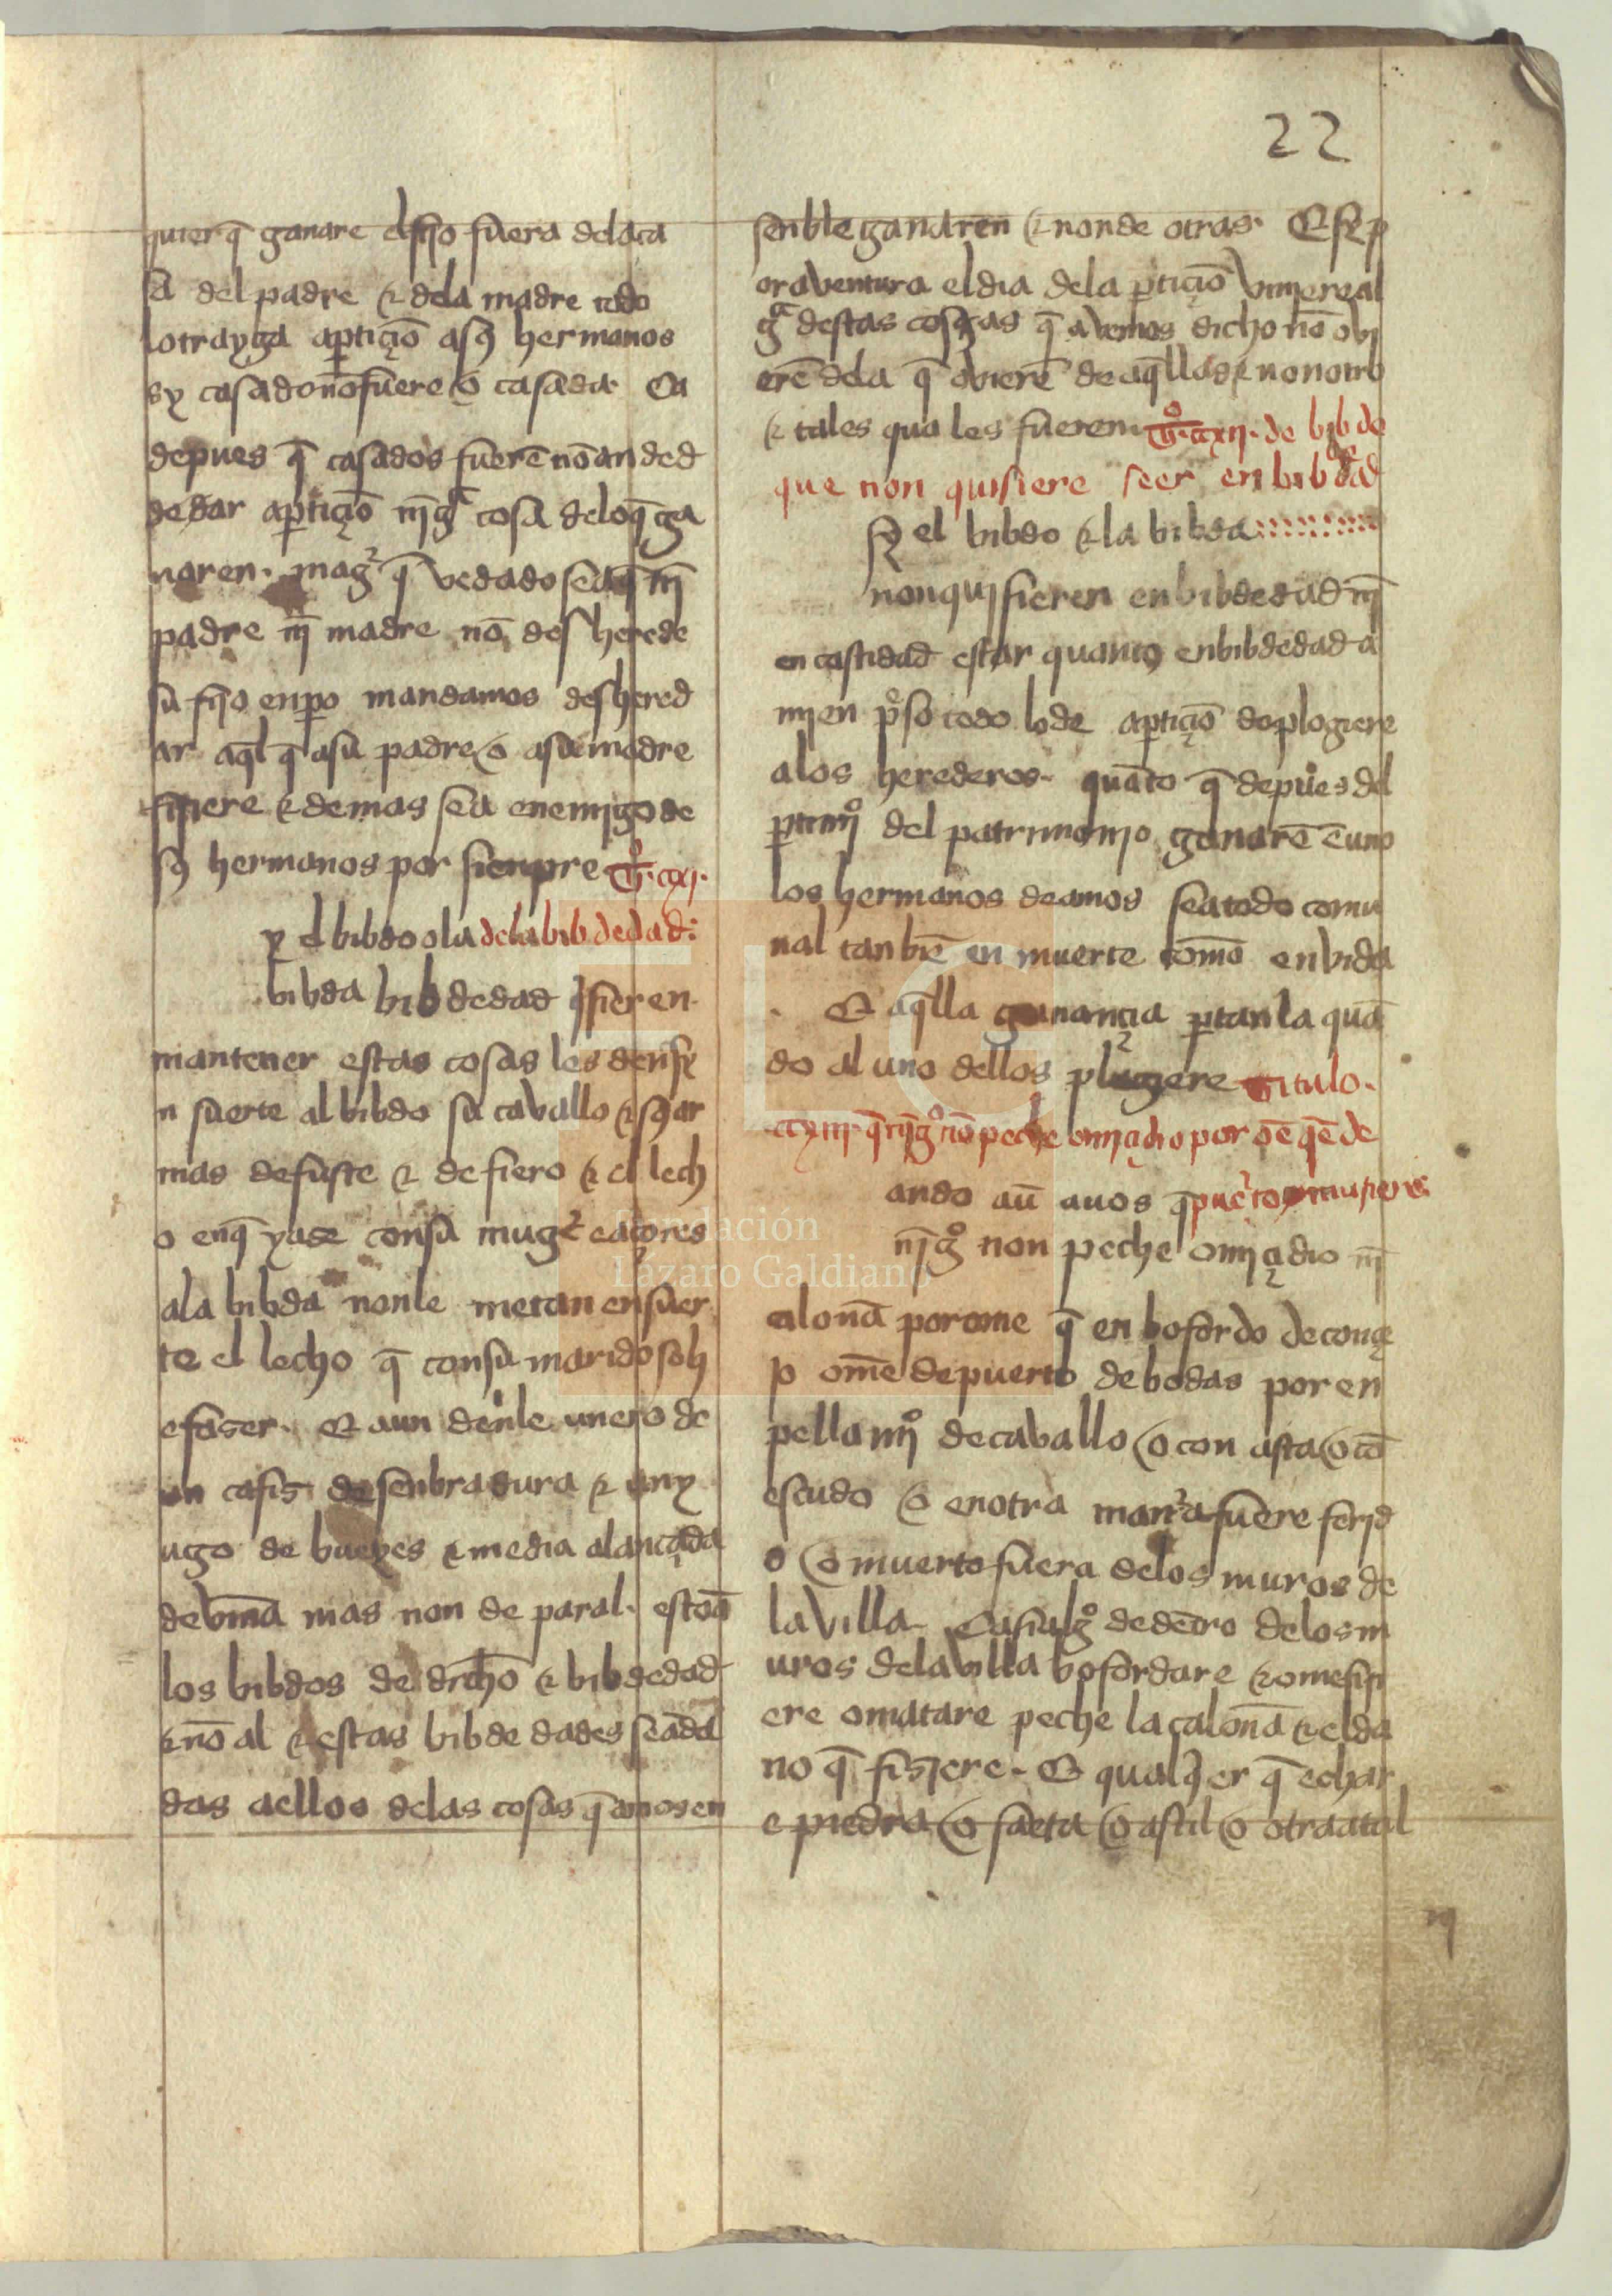 22
quier q̄ ganare el fijo fuera dela ca
sa del padre & dela madre todo
lo trayga aptiçiō a sꝯ hermanos
sy casado nō fuere o casada. Ca
depues q̄ casados fuerē nō an de d
dedar aptiçiō nīgᵃ cosa delo q̄ ga
naren. mag̃ q̄ vedado sea q̄ nī
padre nī madre nō des herede
su fijo enpo mandamos deshered
ar aq̄l q̄ a su padre o a su madre
firiere & demas sea enemigo de
sꝯ hermanos por sienpre. tº. cxj.
y el bibdo o la dela bib dedad:
bibda bib dedad q̄sieren.
mantener estas cosas les den sy
n suerte al bibdo su cavallo & sꝯ ar
mas de fuste & de fierro & el lech
o en q̄ yase con su mug̃ e açores
ala bibda non le metan en suer
te el lecho q̄ con su marido soli
e faser. Et aun denle un ero de
un cafis de senbradura & un y
ugo de bueyes & media alançada
de viña mas non de paral. esto ā
los bibdos de drecho & bibdedad
& nō al & estas bibde dades seā da
das a ellos delas cosas q̄ amos en
senble ganaren & non de otras. Et sy p
or aventura el dia dela ptiçiō viniere al
gᵃ destas cosas q̄ avemos dicho nō ovi
erē dela q̄ ovierē de aq̄llas & non otro
& tales quales fueren. tº. cxij. de bibde
que non quisiere seer en bibdedad
Sy el bibdo & la bibda
non quisieren en bibdedad nī
en castidad estar quanto en bibdedad a
vien pº so todo lo de aptiçiō do plogiere
a los herederos. quāto q̄ depues del
ptimjº del patrimonio ganarē ē uno
los hermanos de amos sea todo comu
nal tanbiē en muerte como en vida
. Et aq̄lla ganançia ptan la quā
do al uno dellos plugiere titulo.
cxiij. q̄ nīgº nō peche omiçidio por oē q̄ ē de
ando aū a vos q̄ puerto muriere
nīgº non peche omiçidio nī
calonā por ome q̄ en bofordo de conçe
jo omē de puerto de bodas por en
pella mjº de cavallo o con asta o cō
escudo o en otra manra fuere ferid
o o muerto fuera delos muros de
la villa. Ca si algº de dētro delos m
uros dela villa bofordare & ome firi
ere o matare peche la calonā & el da
no q̄ fisiere. Et qualq̄er q̄ echar
e piedra o saeta o astil o otra atal